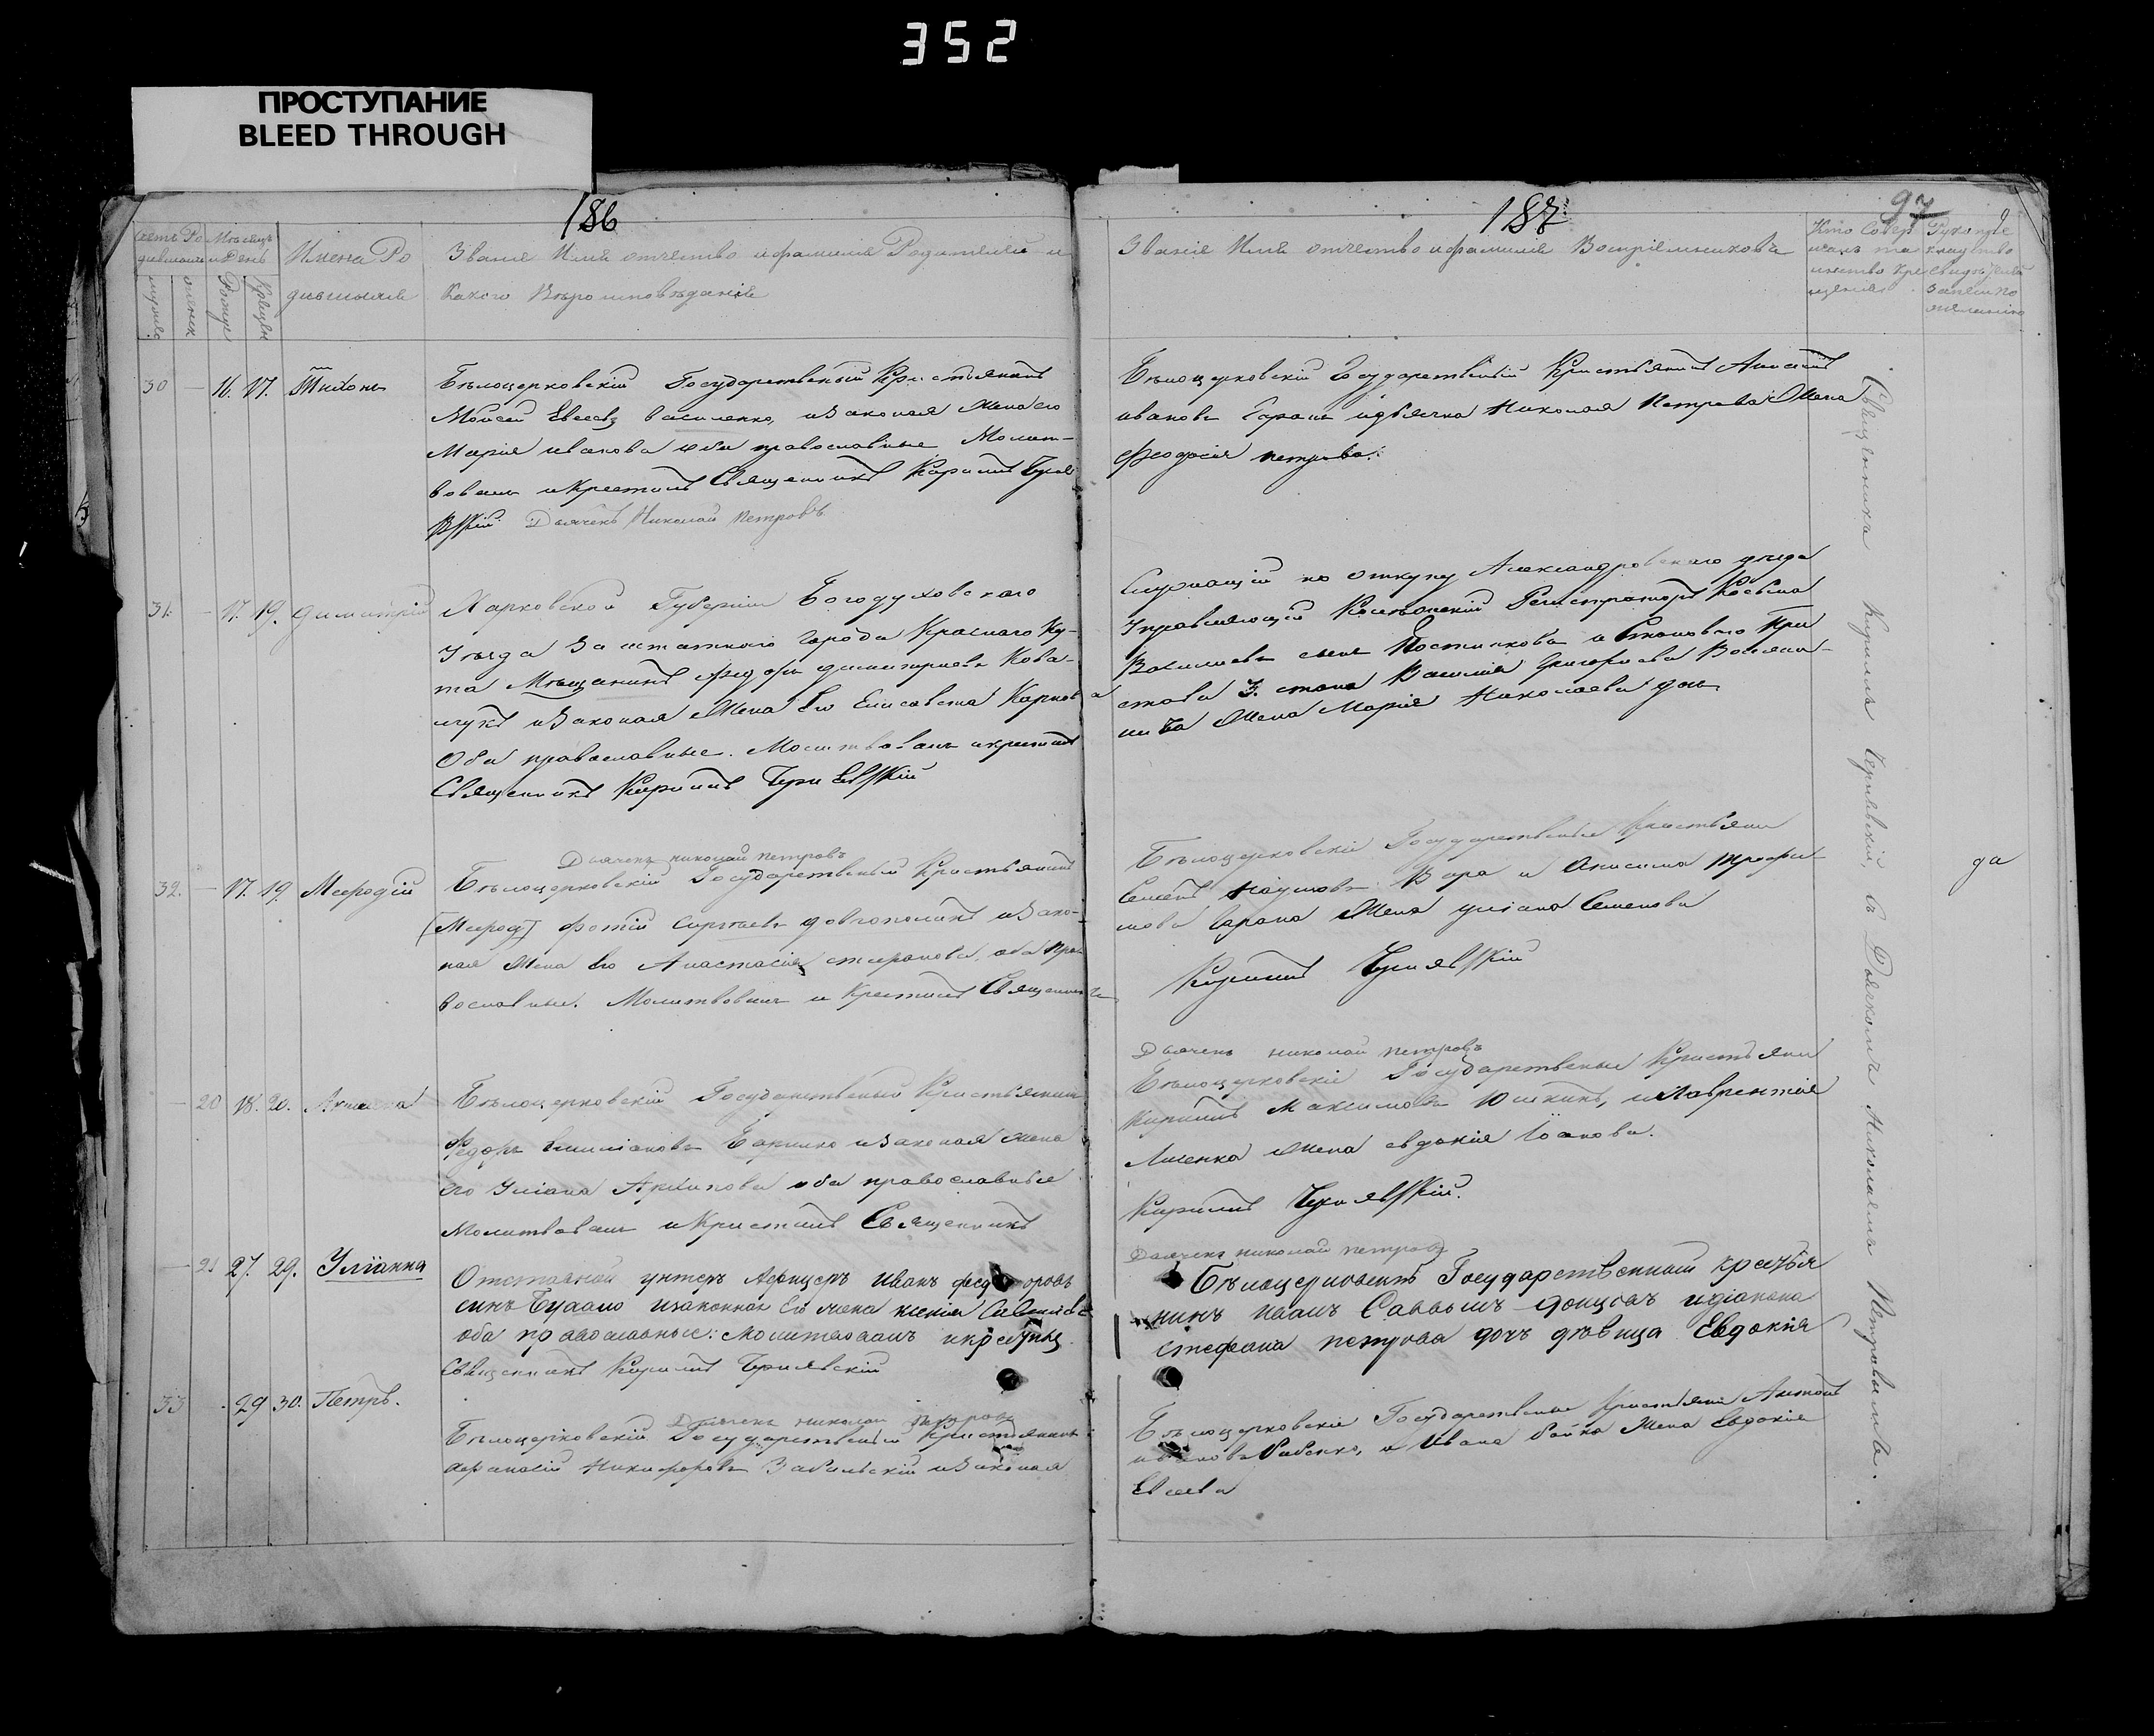 352
ПРОСТУПАНИЕ
BLEED THROUGH
186
Счетъ Ро Мѣсяцъ
дившихся и День
Имена Ро
дившихся
Званіе Имя отчество и фамилія Родителей и
какого Вѣроисповѣданія
30 — 16. 17. Тихонъ
Бѣлоцерковскій Государственый Крестьянинъ
Мойсей Евсеевъ василенко, и законая Жена его
Марія иванова оба православные Молит-
вовалъ и Крестилъ Священникъ Кирилъ Черня
вскій Дьячекъ Николай Петровъ
31. — 17. 19. Димитрій
Харковской Губерніи Богодуховскаго
Уѣзда Заштатного Города Красного Ку-
та Мѣщанинъ Федоръ димитріевъ Кова-
лчукъ и Законая Жена Его Елисавета Карпов
Оба православные. Молитвовалъ и крестилъ
Священникъ Кирилъ
32. — 17. 19. Мефодій
Дьячекъ николай петровъ
Бѣлоцерковскій Государственый Крестьянинъ
[Мефод] фотій Сергѣевъ довгополикъ и Зако-
ная Жена Его Анастасія стефанова, оба Пра-
вославные. Молитвовалъ и Крестилъ Священникъ
— 20 18. 20.
Бѣлоцерковскій Государственый Крестьянинъ
Федоръ Емилианов и Законая Жена
Его Уліана Архипова оба православные
Молитвовалъ и Крестилъ Священникъ
— 21 27. 29. Уліанна
Отставной унтеръ Афицеръ Иванъ федоровъ
синъ Бухало изаконная Его жена ксенія
оба православные: молитвовалъ икрестилъ
Священникъ Кирилъ Чернявскій
33 - 29 30. Петръ.
Дьячекъ николай петровъ
Бѣлоцерковскій Государственый Крестьянинъ
афанасій Никифоровъ Забильскій и Законая
187
97
Званіе Имя отчество и фамилія Воспріемниковъ
Кто Совер
шалъ та
инство Кре
щенія
Рукопри
кладство
Свидѣтелей
записи по
желанію
Бѣлоцерковскій Государственый Крестьянинъ
ивановъ и дьячка Николая Петрова Жена
Феодосія петрова.
Служащій по откупу Александровскаго уѣзда
Управляющій Колежскій Регистраторъ Косьма
Василіевъ сынъ Постниковъ и Становаго При
става 3. стана Василія Григоріева
Жена Марія Николаева дочь
Бѣлоцерковскіе Государственые Крестьяни
Семенъ Наумовъ Вара и Анисима трофи-
мова Жена уліана Семенова
Кирилъ Чернявскій
да
Дьячекъ николай петровъ
Бѣлоцерковскіе Государственые Крестьяни
Кирилъ Максимовъ Юшкинъ, и Лаврентія
Лисенка Жена евдокія Іоанова.
Кирилъ Чернявскій.
Дьячекъ николай петровъ
Государственный крестья
нинъ иванъ Саввинъ донцовъ идіакона
стефана петрова дочъ дѣвица Евдокія
Бѣлоцерковскіе Государственые Крестьяни Антонъ
ивановъ и Ивана бойка Жена Евдокія
Евсеева
Священникъ Кирилъ Чернявскій съ Дьячкомъ Николаемъ Петровымъ.